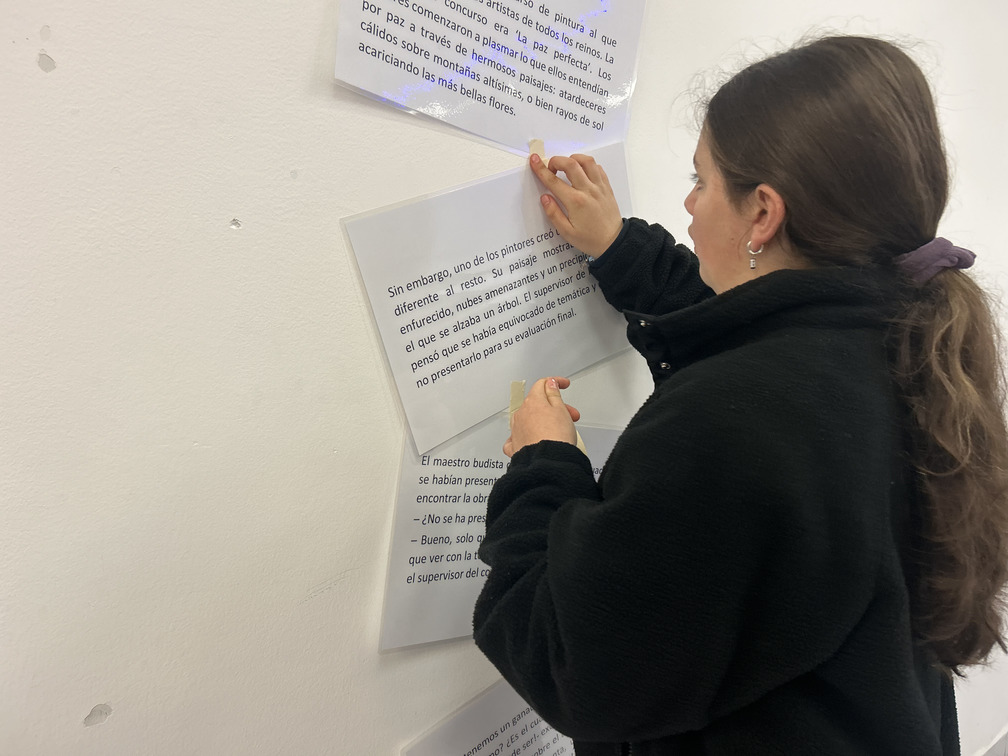 de pintura al que
artistas de todos los reinos. La
concurso era 'La paz perfecta'. Los
comenzaron a plasmar lo que ellos entendían
por paz a través de hermosos paisajes: atardeceres
cálidos sobre montañas altísimas, o bien rayos de sol
acariciando las más bellas flores.
Sin embargo, uno de los pintores creó
diferente al resto. Su paisaje
enfurecido, nubes amenazantes y un
el que se alzaba un árbol. El supervisor de
pensó que se había equivocado de temática y
no presentarlo para su evaluación final.
El maestro budista
se habían
encontrar la
– ¿No se ha
– Bueno, solo
que ver con la
el supervisor del
un
¿Es el
de